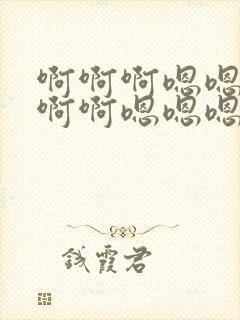 啊啊啊嗯嗯
啊啊嗯嗯嗯
钱霞君